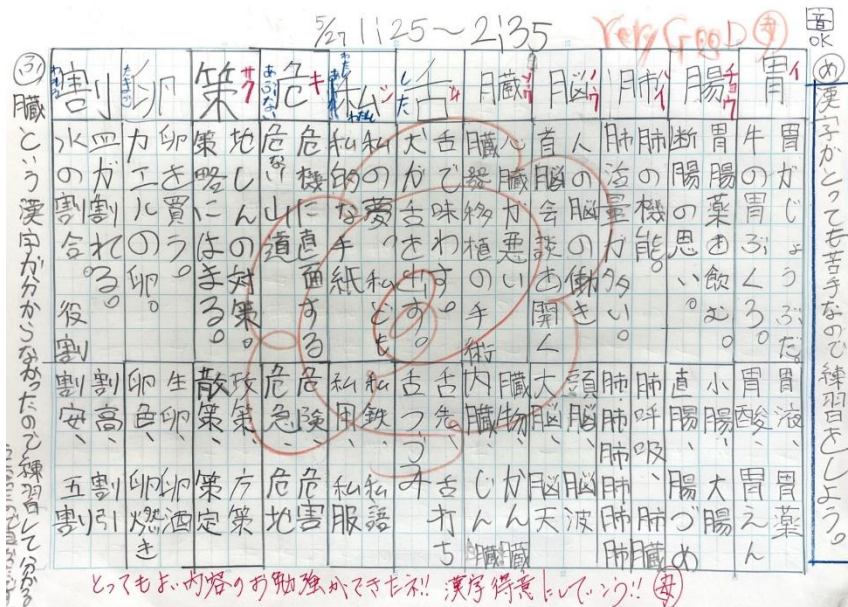 5/27 1:25～2:35
Very GooD
音
OK
め 漢字がとっても苦手なので練習をしよう。
胃 イ
胃がじょうぶだ。
牛の胃ぶくろ。
胃液、胃薬
胃酸、胃えん
腸 チョウ
胃腸薬を飲む。
断腸の思い。
小腸、大腸
直腸、腸づめ
肺 ハイ
肺の機能。
肺活量が多い。
肺呼吸、肺臓
肺肺肺肺肺
脳 ノウ
人の脳の働き
首脳会談を開く
頭脳、脳波
大脳、脳天
臓 ゾウ
心臓が悪い
臓器移植の手術
臓物、かん臓
内臓、じん臓
舌 した
舌で味わす。
犬が舌を出す。
舌先、舌打ち
舌つづみ
私 シ わたくし わたし
私の夢。私ども
私的な手紙
私鉄、私語
私用、私服
危 キ あぶない
危機に直面する
危ない山道
危険、危害
危急、危地
策 サク
地しんの対策。
策略にはまる。
政策、方策
散策、策定
卵 たまご
卵を買う。
カエルの卵。
生卵、卵酒
卵色、卵焼き
割 わる
皿が割れる。
水の割合。役割
割高、割引
割安、五割
ふ 臓という漢字が分からなかったので練習して分かる
とってもよい内容のお勉強ができたネ!! 漢字得意にしていこう!! 母